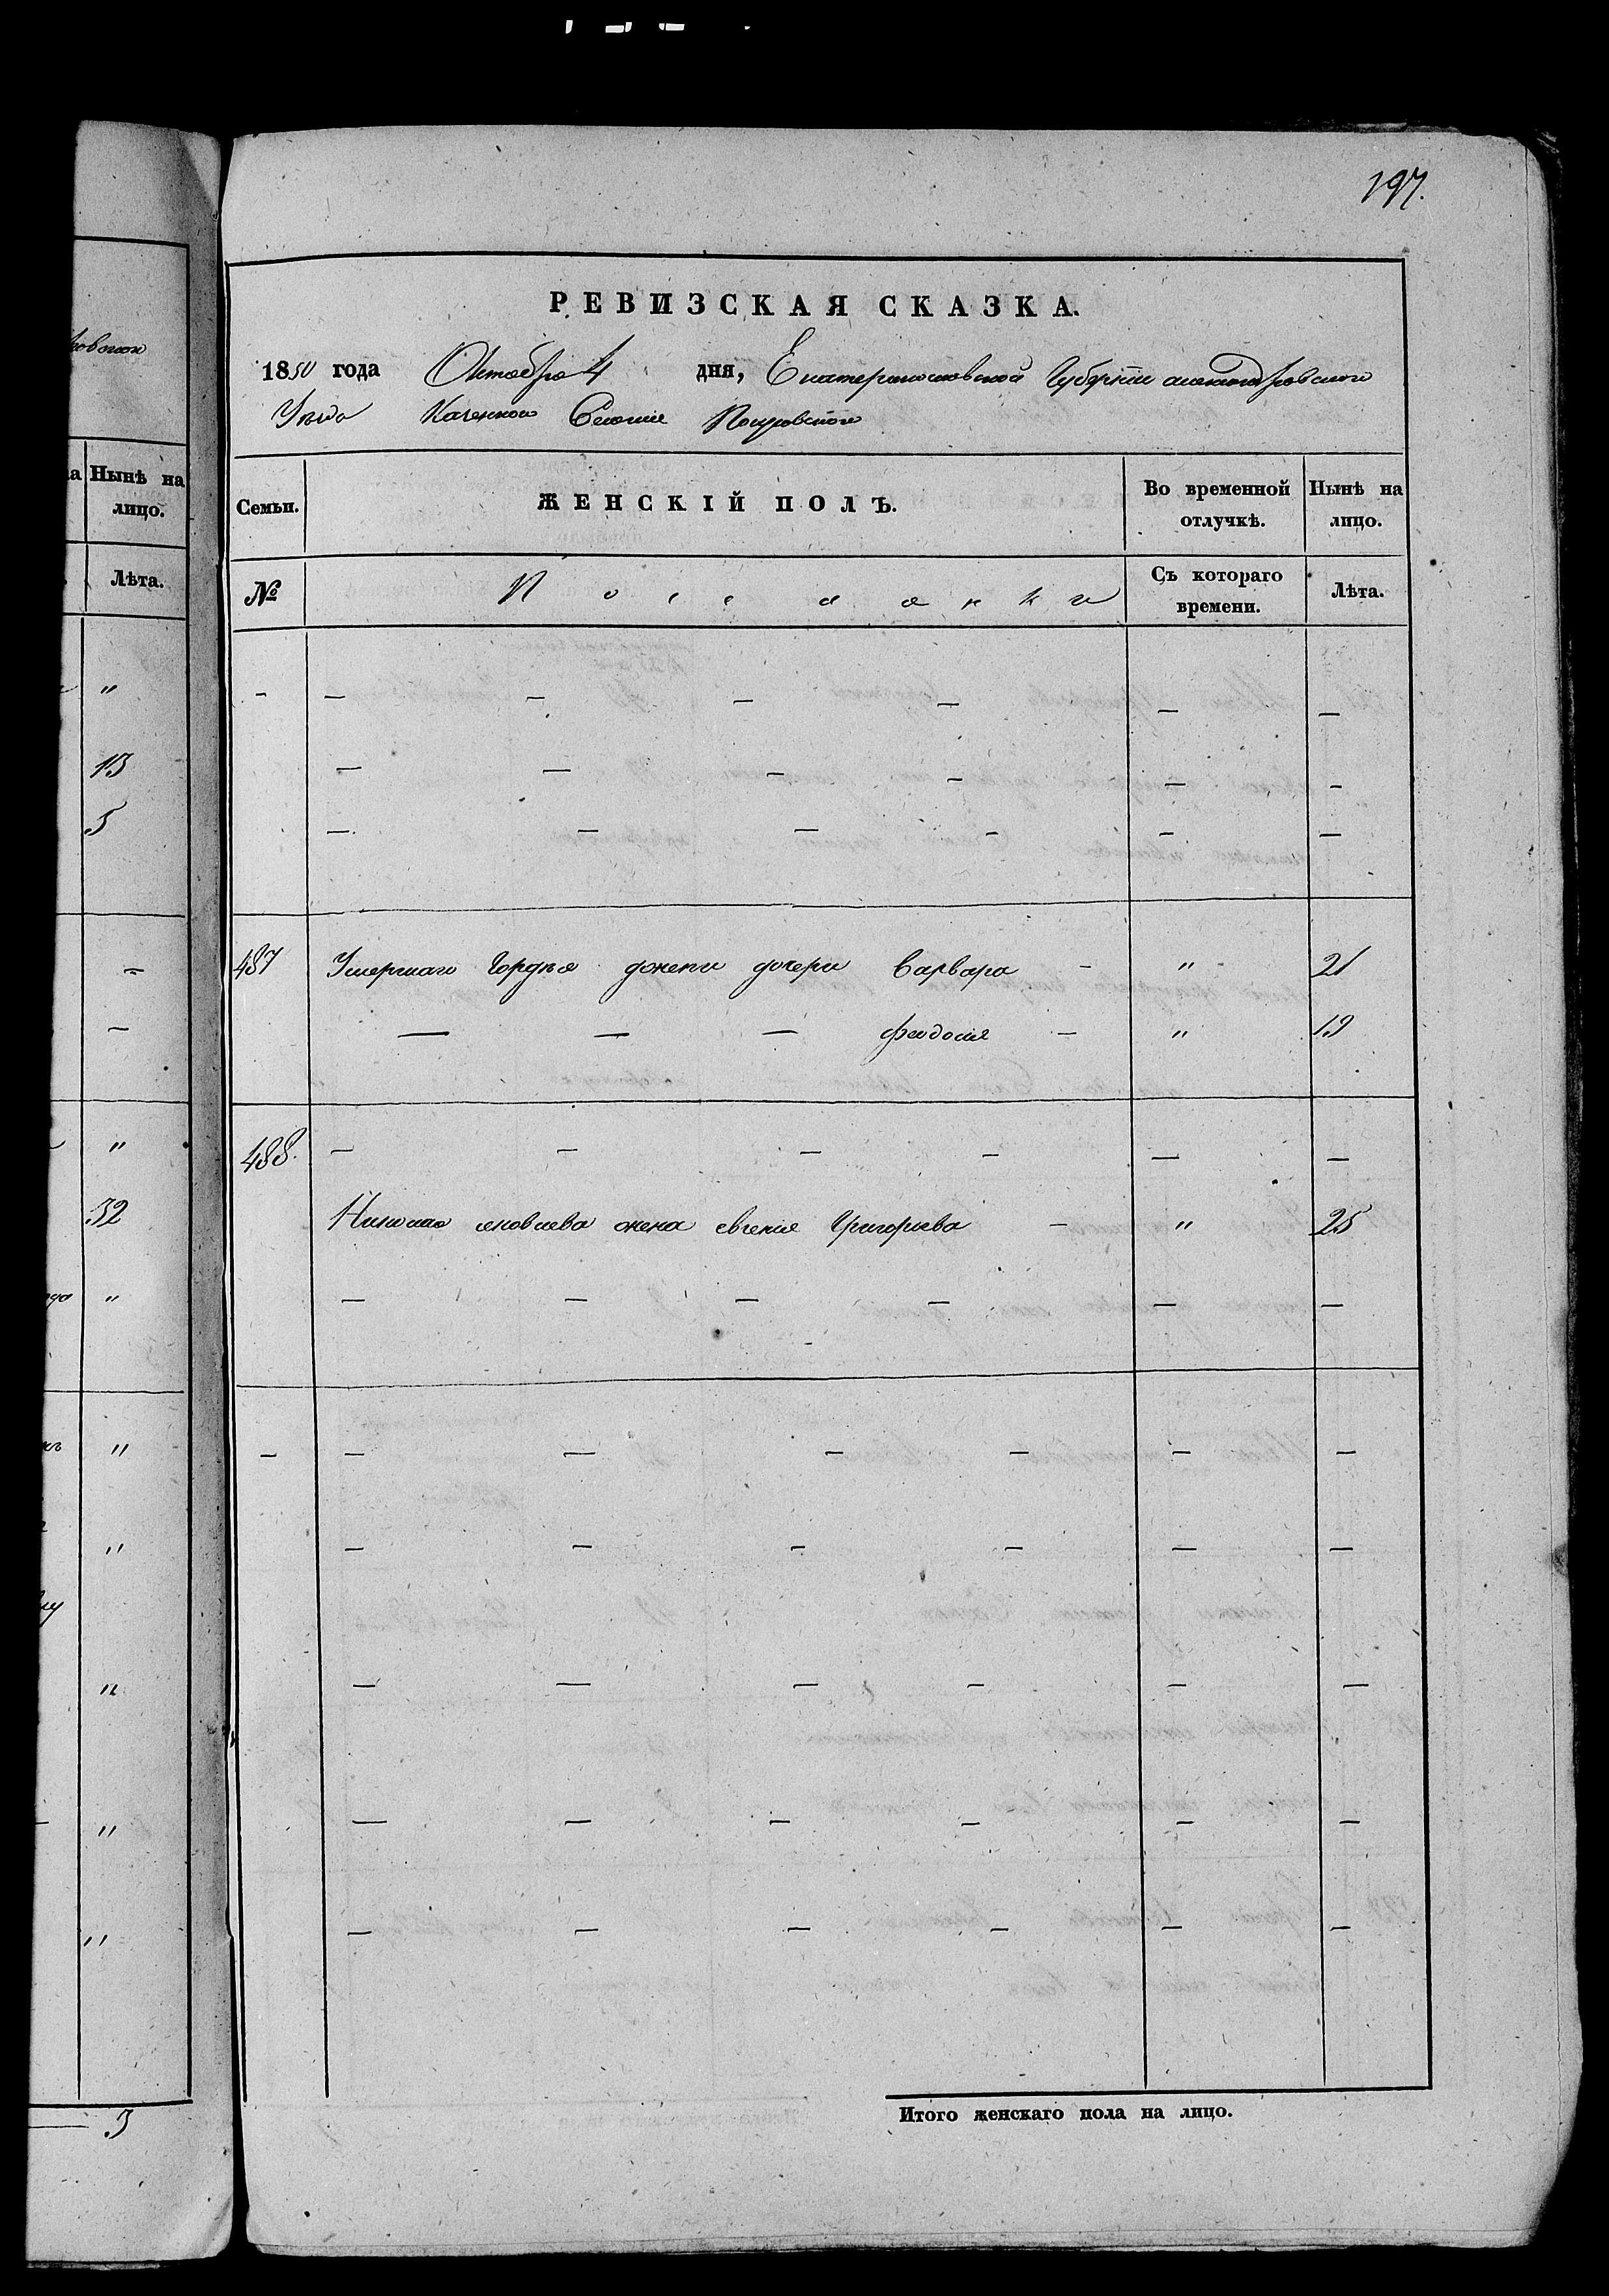 197.
РЕВИЗСКАЯ СКАЗКА.
1850 года Октября 4 дня, Екатеринославской Губернии Александровского
Уезда Казенного Селения Покровского
Семьи.
ЖЕНСКІЙ ПОЛЪ.
Во временной отлучкѣ.
Нынѣ на лицо.
№
Поселянки
Съ котораго времени.
Лѣта.
- — — — — — —
— — — — — —
— — — — — —
487 Умершаго Гордѣя дочери Варвара - " 21
— — — Феодосія — " 19
488. — — — — — —
Николая Яковлева жена Евгенія Григорьева — " 25
— — — — — —
— — — — — — —
— — — — — —
— — — — — —
— — — — — —
— — — — — —
Итого женскаго пола на лицо.
Нынѣ на
лицо.
Лѣта.
"
13
5
-
-
"
32
"
"
"
"
"
"
3